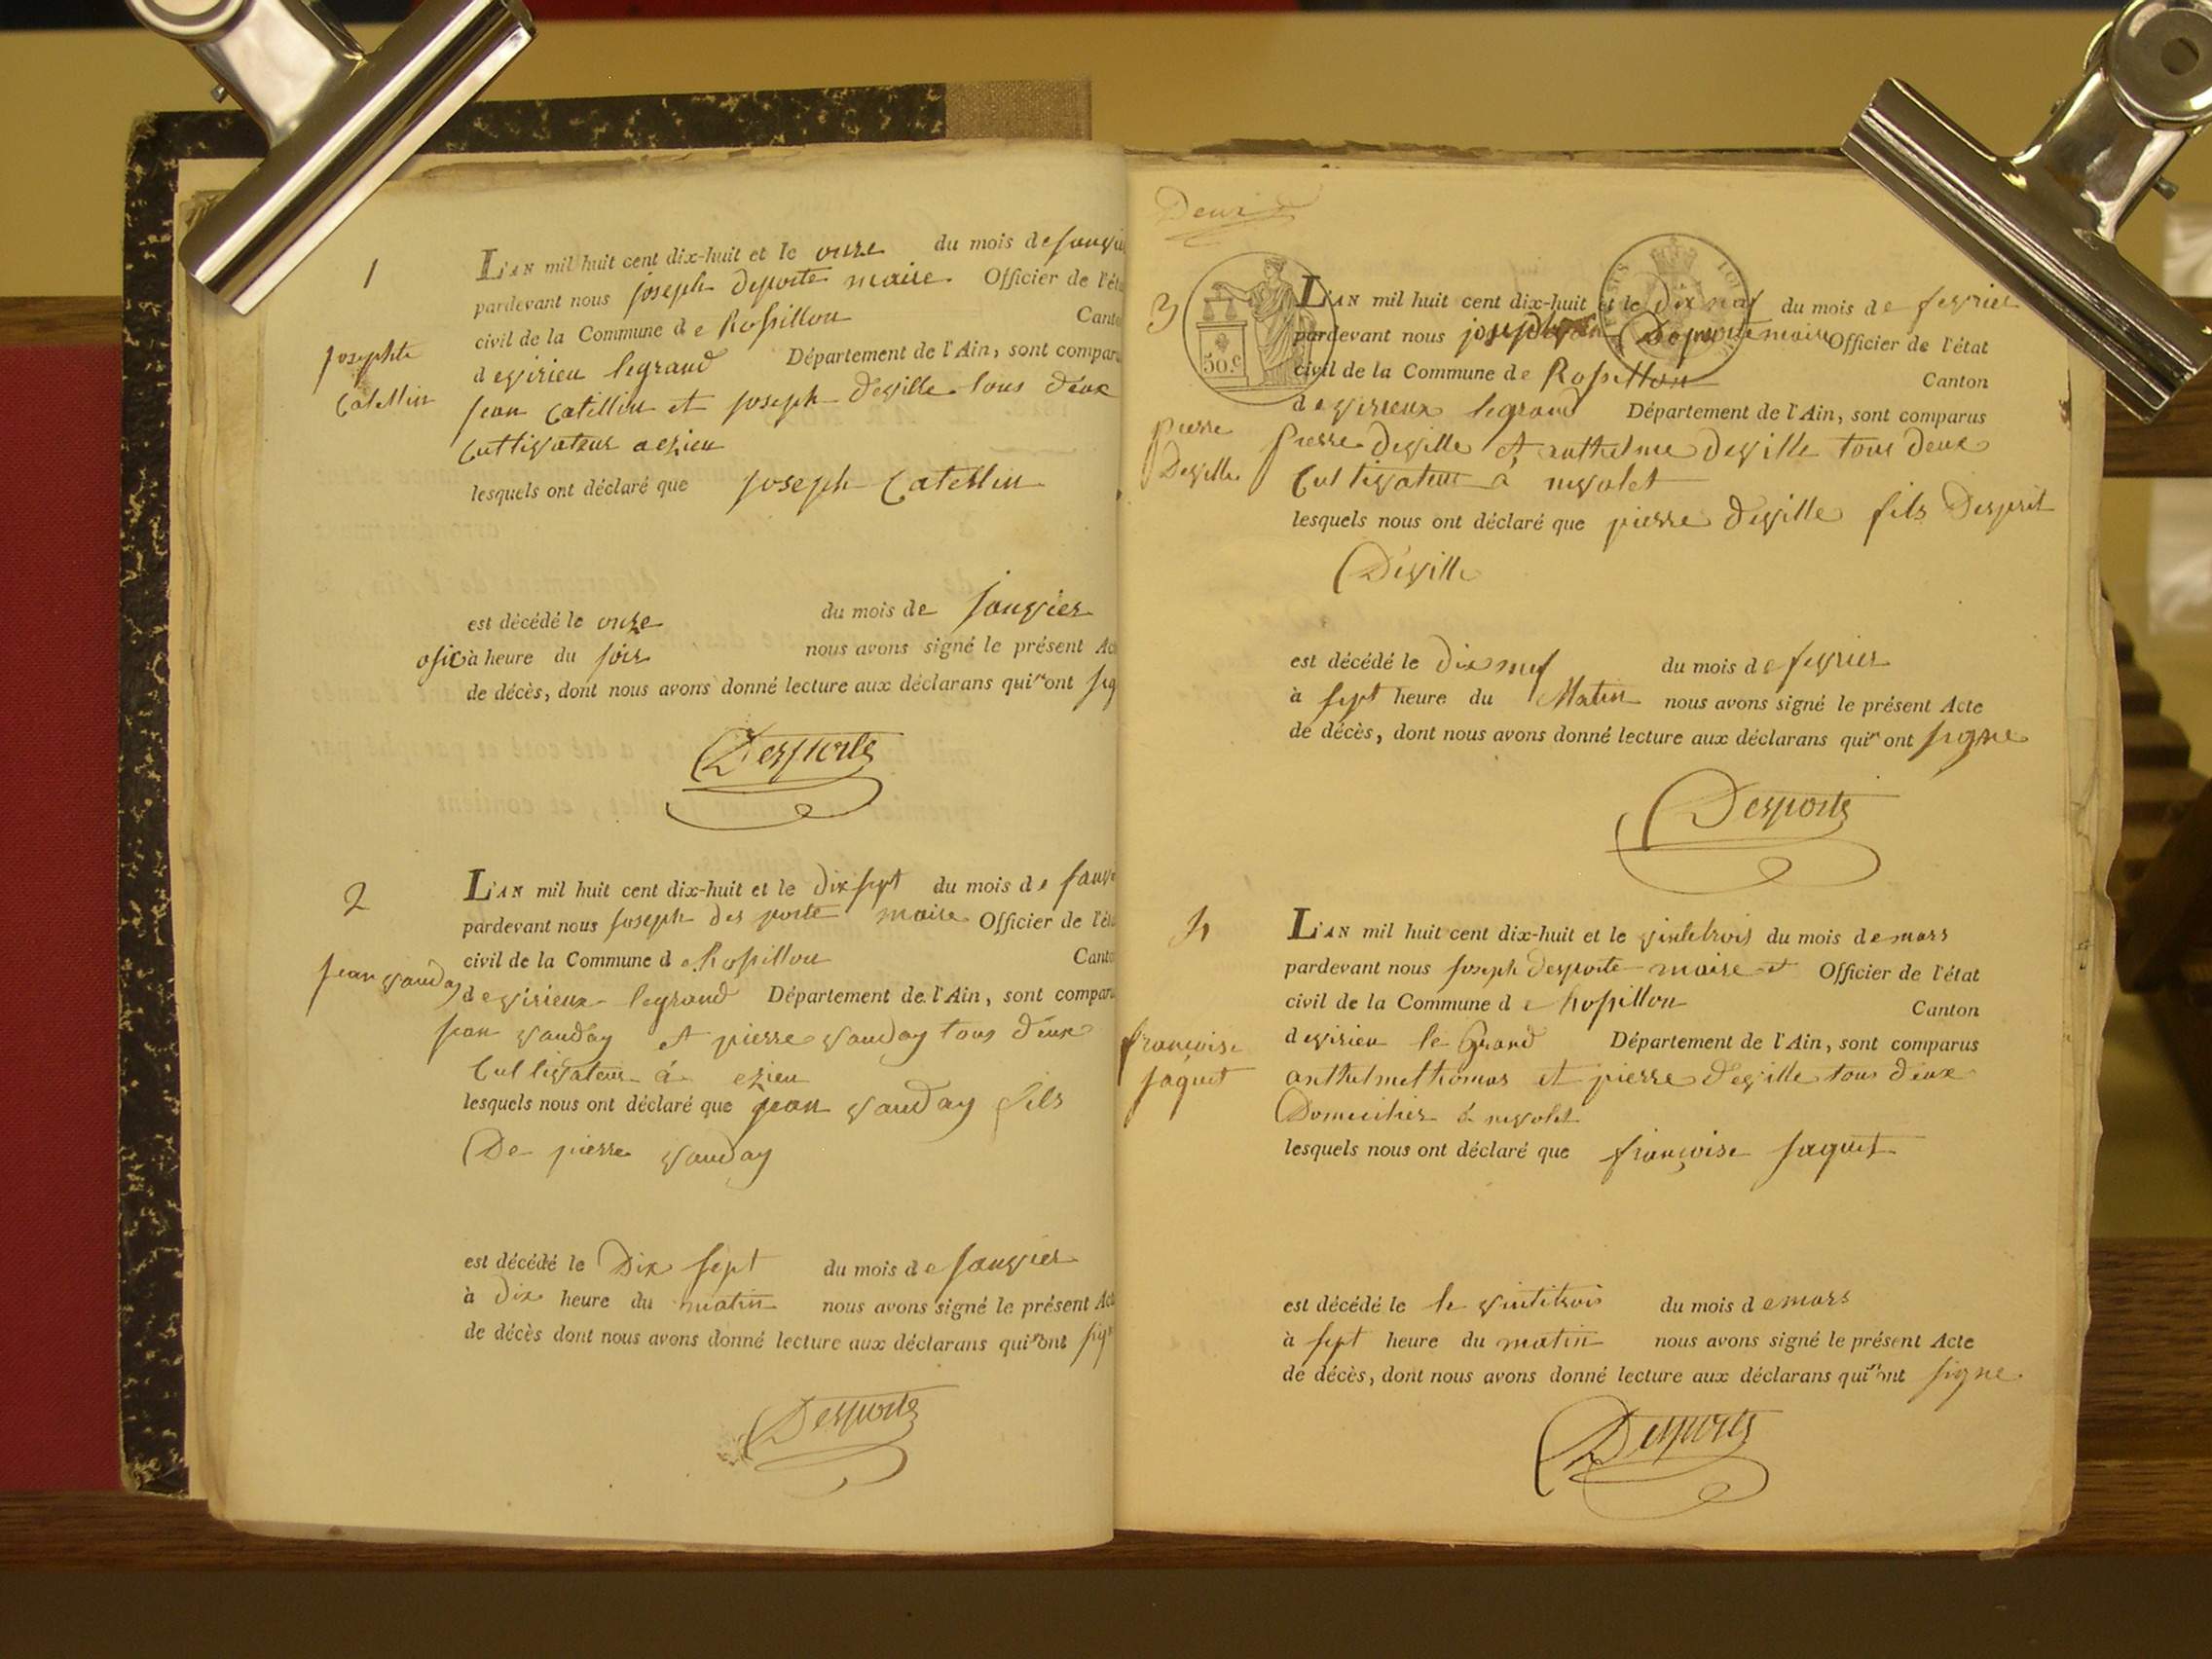 1
L'AN mil huit cent dix-huit et le onze du mois de janvie
pardevant nous joseph deporte maire Officier de l'éta
civil de la Commune de Rossillon Canto
devirieu legrand Département de l'Ain, sont compar
josephte
Catellin
jean Catellin et joseph deville tous deux
Cultivateur aezieu
lesquels ont déclaré que joseph Catellin
est décédé le onze du mois de janvier
à heure du soir nous avons signé le présent Ac
de décès, dont nous avons donné lecture aux déclarans qui n'ont sig
Desporte
2
L'AN mil huit cent dix-huit et le dix sept du mois de janvi
pardevant nous joseph des porte maire Officier de l'éta
civil de la Commune de Rossillon Canto
jean vauday
devirieux legrand Département de l'Ain, sont compar
jean vauday et pierre vauday tous deux
Cultivateur á ezieu
lesquels nous ont déclaré que jean vauday fils
De pierre vauday
est décédé le Dix sept du mois de janvier
à dix heure du matin nous avons signé le présent Act
de décès dont nous avons donné lecture aux déclarans qui n'ont sign
Desporte
Deux
50.c
3
L'AN mil huit cent dix-huit et le dix neuf du mois de fevrier
pardevant nous joseph Deporte maire Officier de l'état
civil de la Commune de Rossillon Canton
devirieux legrand Département de l'Ain, sont comparus
pierre
Deville
pierre deville et anthelme deville tous deux
Cultivateur á nivolet
lesquels nous ont déclaré que pierre deville fils Desprit
Déville
est décédé le dix neuf du mois de fevrier
à sept heure du Matin nous avons signé le présent Acte
de décès, dont nous avons donné lecture aux déclarans qui n'ont signe
Desporte
4
L'AN mil huit cent dix-huit et le vintetrois du mois de mars
pardevant nous joseph desporte maire et Officier de l'état
civil de la Commune de Rossillon Canton
devirieu le Grand Département de l'Ain, sont comparus
françoise
jaquet
anthelme thomas et pierre deville tous deux
Domiciliés á nivolet
lesquels nous ont déclaré que françoise jaquet
est décédé le le vintetrois du mois de mars
à sept heure du matin nous avons signé le présent Acte
de décès, dont nous avons donné lecture aux déclarans qui n'ont signe
Desporte